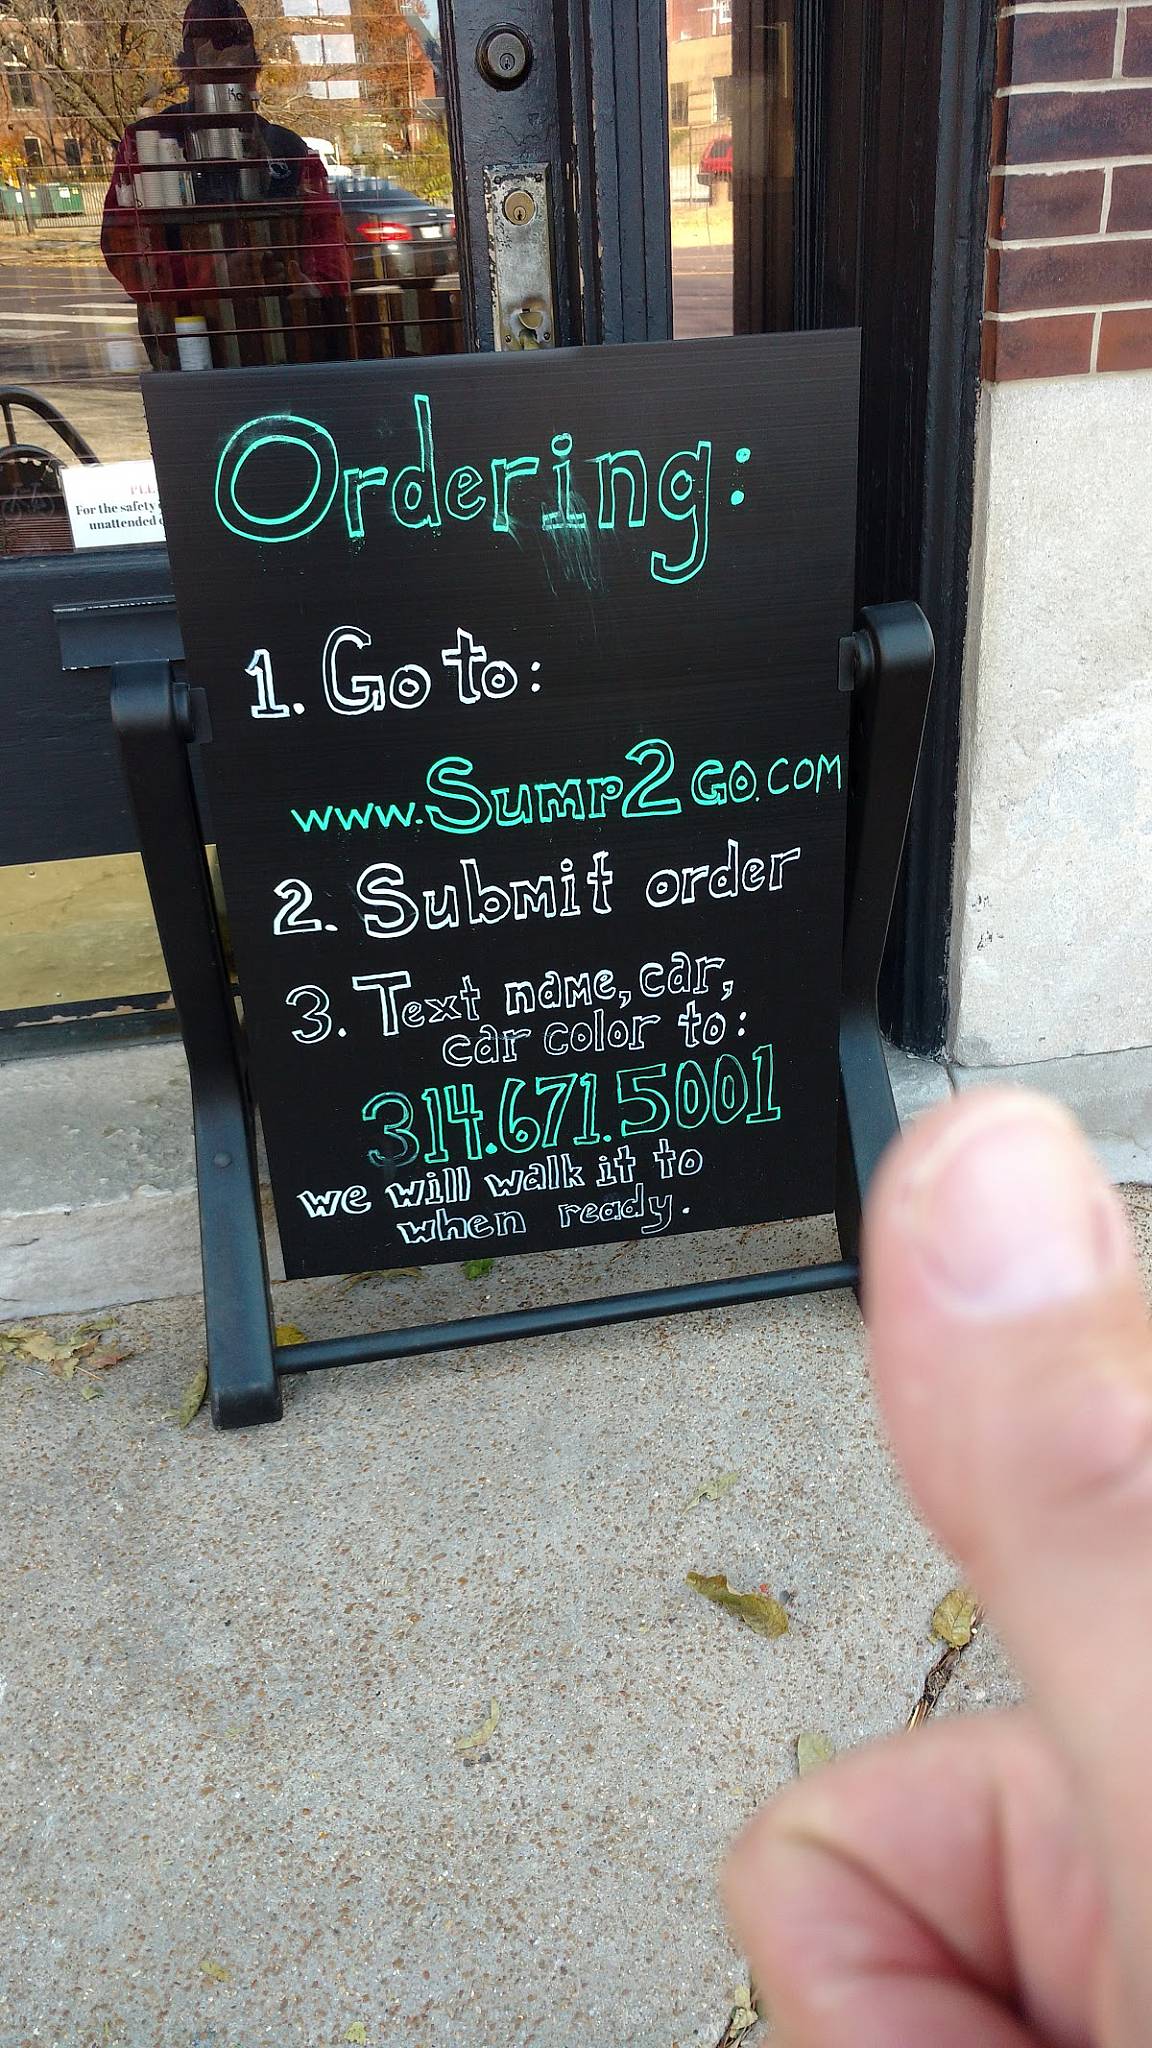 Ordering:
1. Go to:
www.Sump2Go.COM
2. Submit order
3. Text name, car,
car color to:
314.671.5001
we will walk it to
when ready.
For the safety
unattended